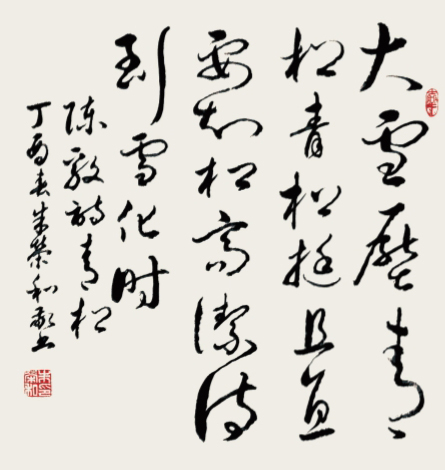 大雪压青
松青松挺且直
要知松高洁待
到雪化时
陈毅诗青松
丁酉春朱荣和敬书